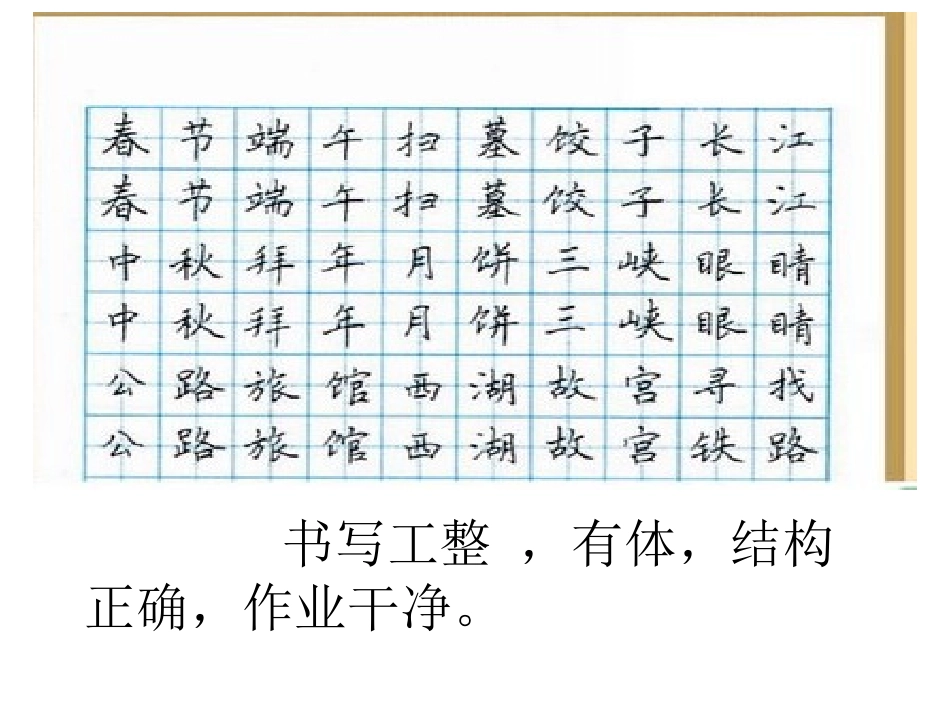 春节端午扫墓饺子长江
春节端午扫墓饺子长江
中秋拜年月饼三峡眼睛
中秋拜年月饼三峡眼睛
公路旅馆西湖故宫寻找
公路旅馆西湖故宫铁路
书写工整 ，有体，结构
正确，作业干净。